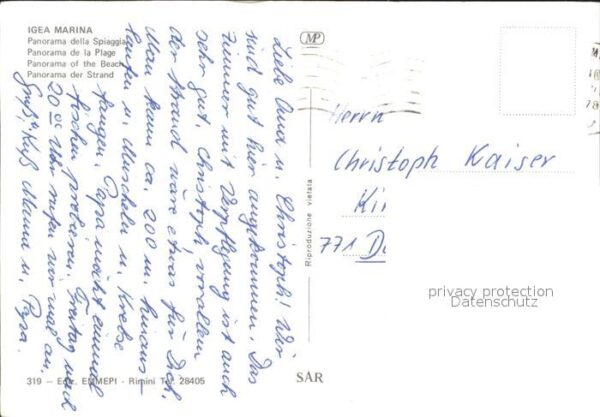 IGEA MARINA
Panorama della Spiaggia
Panorama de la Plage
Panorama of the Beach
Panorama der Strand
Liebe Oma u. Christoph! Wir
sind gut hier angekommen. Das
Zimmer mit Verpflegung ist auch
sehr gut. Christoph, vorallem
der Strand wäre etwas für Dich.
Man kann ca. 200 m. hinaus-
laufen u. Muscheln u. Krebse
fangen. Papa möcht einmal
fischen probieren. Freitag nach
20 00 Uhr rufen wir mal an.
Gruß u. Kuß Mama u. Papa.
MP
Riproduzione vietata
Herrn
Christoph Kaiser
771
privacy protection
Datenschutz
319 - EMMEPI - Rimini Tel. 28405
SAR